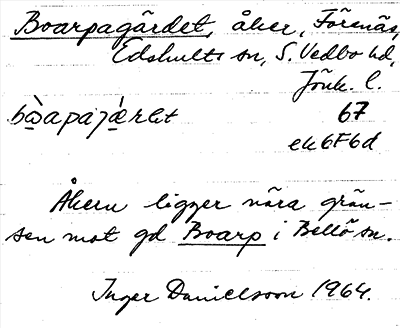 Boarpagärdet, åker, Förenäs,
Edshults sn, S. Vedbo hd,
Jönk. l.
67
ek 6F6d
Åkern ligger nära grän-
sen mot gd Boarp i Bellö sn.
Inger Danielsson 1964.